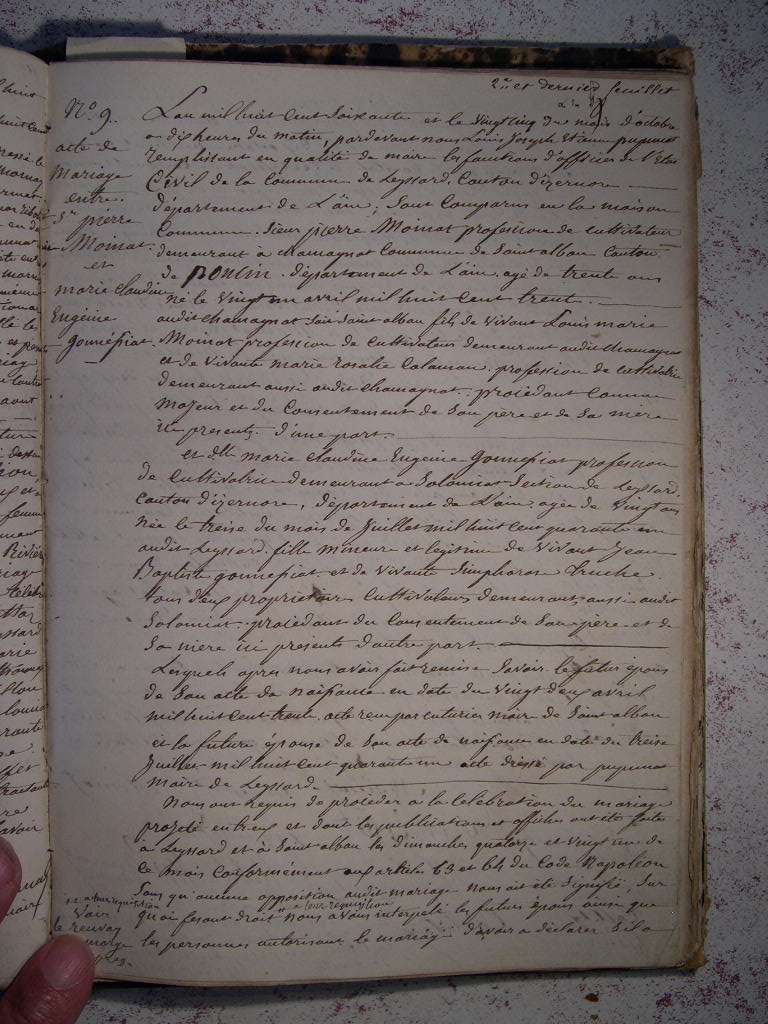 2me et dernier feuillet
N° 9.
acte de
Mariage
entre
Sr pierre
Moinat
et
marie Claudine
Eugénie
gonnefiat.
L'an mil huit cent soixante et le vingt cinq du mois d'octobre
a dix heures du matin, pardevant nous Louis Joseph Etienne pupunat
remplissant en qualité de maire les fonctions d'officier de l'Etat
Civil de la Commune de Leyssard, Canton d'izernore
département de L'ain; Sont Comparus en la maison
Commune. Sieur pierre Moinat profession de cultivateur
demeurant à chamagnat Commune de Saint alban Canton
de poncin. département de L'ain, agé de trente ans
né le vingt un avril mil huit cent trente.
audit chamagnat Saint alban fils de vivant Louis marie
Moinat profession de Cultivateur demeurant audit Chamagnat
et de vivante marie rosalie profession de cultivatrice
demeurant aussi audit Chamagnat. procédant Comme
majeur et du Consentement de Son père et de Sa mère
ici présents. d'une part.
et dlle marie Claudine Eugénie gonnefiat profession
de Cultivatrice demeurant à Solomiat Section de Leyssard,
canton d'izernore, département de L'ain, agée de vingt ans
née le treise du mois de Juillet mil huit cent quarante un
audit Leyssard, fille mineure et légitime de vivant Jean
Baptiste gonnefiat et de vivante Simphorose Truche
tous deux propriétaires Cultivateurs demeurant aussi audit
Solomiat. procédant du Consentement de Son père et de
Sa mère ici présents d'autre part.
Lesquels après nous avoir fait remise Savoir. le futur époux
de Son acte de naissance en date du vingt deux avril
mil huit cent trente. acte reçu par maire de Saint alban
et la future épouse de Son acte de naissance en date du treise
Juillet mil huit cent quarante un acte dressé par pupunat
maire de Leyssard.
Nous ont requis de procéder à la célébration du mariage
projeté entr'eux et dont les publications et affiches ont été faites
à Leyssard et à Saint alban les dimanches quatorze et vingt un de
Ce mois Conformément aux articles 63 et 64 du Code Napoléon
Sans qu'aucune opposition audit mariage nous ait été signifié, Sur
à leur réquisition
quoi fesant droit nous avons interpelé les futurs époux ainsi que
les personnes autorisant le mariage d'avoir à déclarer S'il a
à leur réquisition
Voir
le renvoi
marge